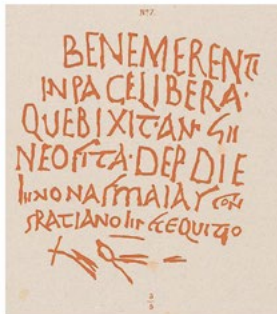 Nº 7.
BENEMERENTI
IN PACE LIBERA·
QUE BIXIT·AN· GII
NEOFITA·DEP DIE
III NONAS MAIAS CON
GRATIANO III ET EQUITIO
3
8